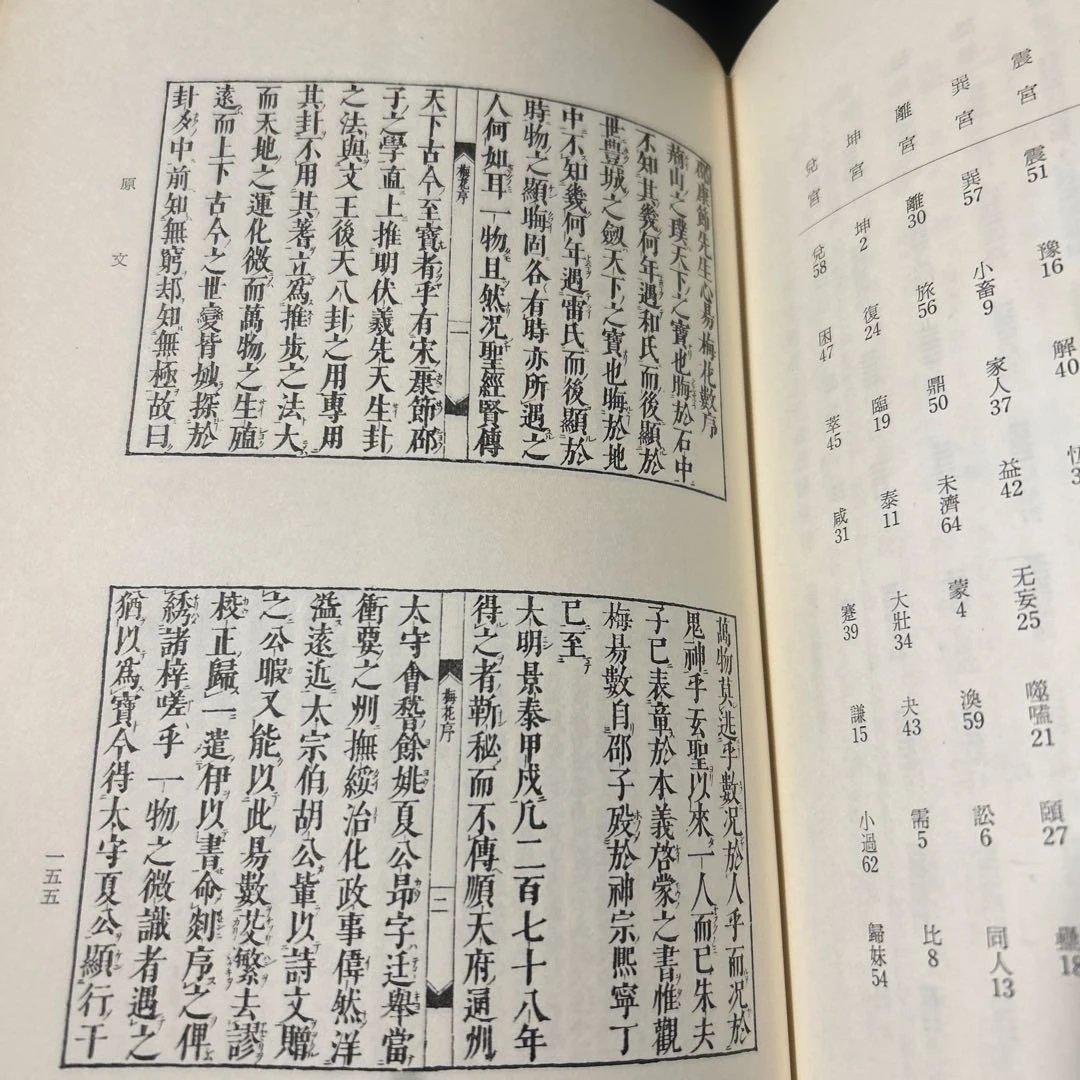 震宮 震51 豫16 解40
巽宮 巽57 小畜9 家人37 益42 无妄25 噬嗑21 頤27 蠱18
離宮 離30 旅56 鼎50 未濟64 蒙4 渙59 訟6 同人13
坤宮 坤2 復24 臨19 泰11 大壯34 夬43 需5 比8
兌宮 兌58 困47 萃45 咸31 蹇39 謙15 小過62 歸妹54
邵康節先生心易梅花數序
荊山之璞天下之寶也晦於石中
不知其幾何年遇和氏而後顯於
世豐城之劔天下之寶也晦於地
中不知幾何年遇雷氏而後顯於
時物之顯晦固各有時亦所遇之
人何如耳一物且然况聖經賢傳
梅花序 一
天下古今至寶者乎有宋康節邵
子之學直上推明伏羲先天生卦
之法與文王後天八卦之用專用
其卦不用其蓍立爲推步之法大
而天地之運化微而萬物之生殖
遠而上下古今之世變皆妙探於
卦爻中前知無窮却知無極故曰
萬物莫逃乎數况於人乎而况於
鬼神乎玄聖以來一人而已朱夫
子已表章於本義啓蒙之書惟觀
梅易數自邵子殁於神宗熙寧丁
巳至
大明景泰甲戌凡二百七十八年
得之者靳秘而不傳順天府通州
梅花序 二
太守會稽餘姚夏公昂字廷舉當
衝要之州撫綏治化政事偉然洋
溢遠近太宗伯胡公軰以詩文贈
之公暇又能以此易數芟繁去謬
校正歸一遣伊以書命剡序之俾
綉諸梓嗟乎一物之微識者遇之
猶以爲寶今得太守夏公顯行于
原文
一五五